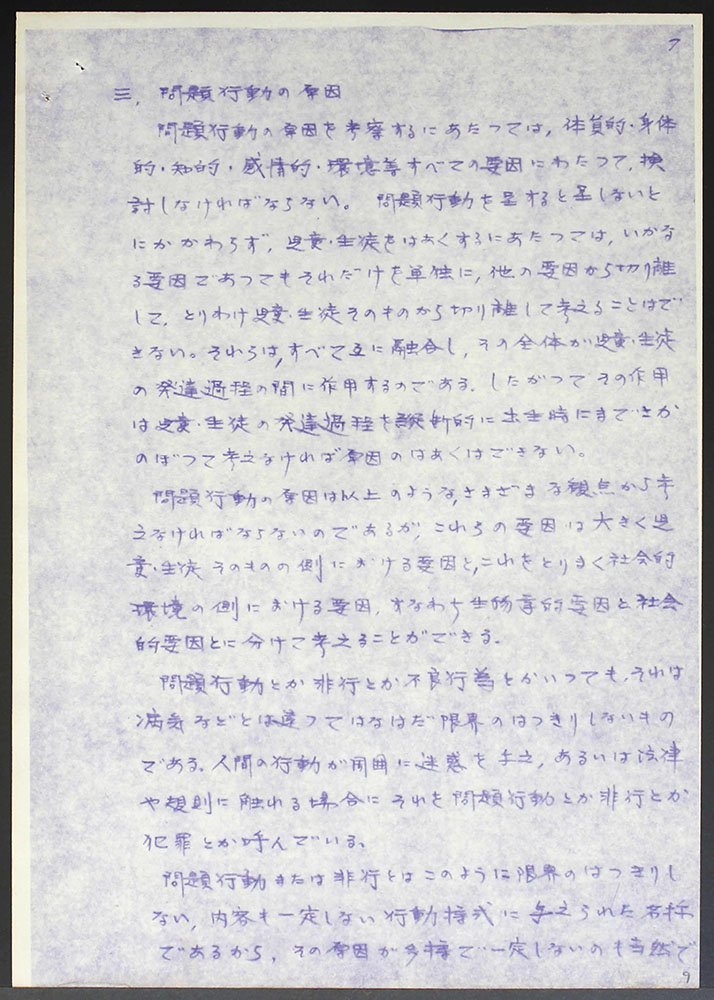 7
三、問題行動の原因
問題行動の原因を考察するにあたつては、体質的・身体
的・知的・感情的・環境等すべての要因にわたつて、検
討しなければならない。問題行動を呈すると呈しないと
にかかわらず、児童・生徒をはあくするにあたつては、いかな
る要因であつてもそれだけを単独に、他の要因から切り離
して、とりわけ児童・生徒そのものから切り離して考えることはで
きない。それらは、すべて互に融合し、その全体が児童・生徒
の発達過程の間に作用するのである。したがつてその作用
は児童・生徒の発達過程を縦断的に出生時にまでさか
のぼつて考えなければ原因のはあくはできない。
問題行動の原因は以上のような、さまざまな観点から考
えなければならないのであるが、これらの要因は大きく児
童・生徒そのものの側における要因と、これをとりまく社会的
環境の側における要因、すなわち生物学的要因と社会
的要因とに分けて考えることができる。
問題行動とか非行とか不良行為とかいつても、それは
病気などとは違つてはなはだ限界のはつきりしないもの
である。人間の行動が周囲に迷惑を与え、あるいは法律
や規則に触れる場合にそれを問題行動とか非行とか
犯罪とか呼んでいる。
問題行動または非行とはこのように限界のはつきりし
ない、内容も一定しない行動様式に与えられた名称
であるから、その原因が多様で一定しないのも当然で
9